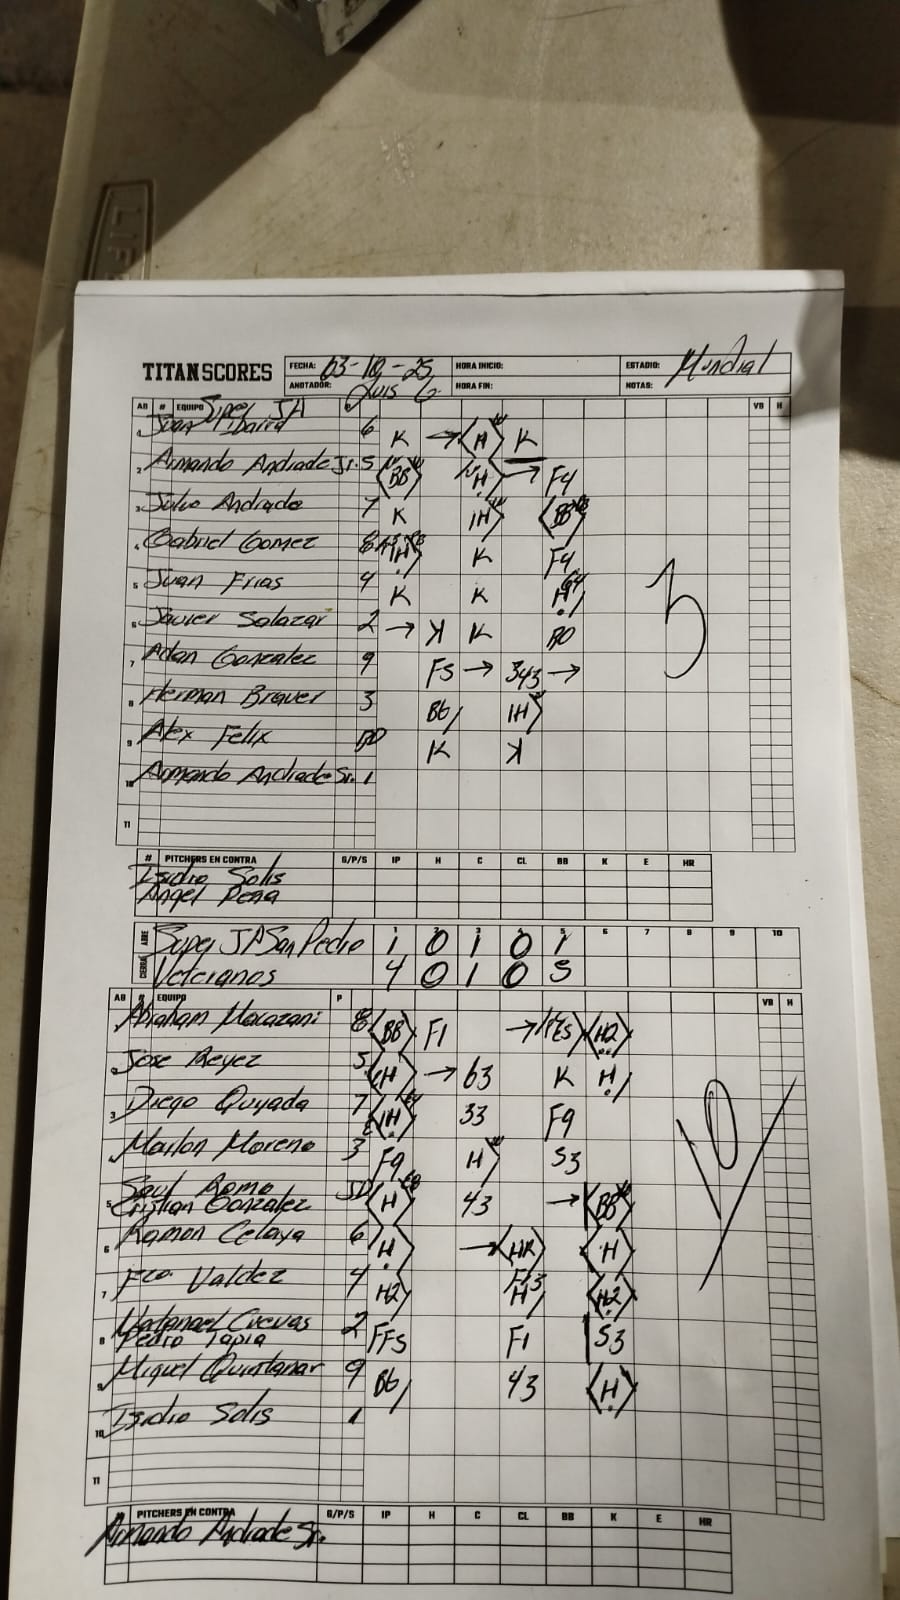 TITAN SCORES
FECHA: 03-10-25 HORA INICIO: ESTADIO: Mundial
ANOTADOR: Luis G HORA FIN: NOTAS:
AB # EQUIPO Super JA VB H
1 Juan Ibarra 6 K → H K
2 Armando Andrade Jr. 5 BB H → F4
3 Julio Andrade 7 K 1H BB
4 Gabriel Gomez 8 H K F4
5 Juan Frias 4 K K H
6 Javier Salazar 2 → K K
7 Adan Gonzalez 9 F5 → 343 →
8 Herman Brauer 3 BB 1H
9 Alex Felix K K
10 Armando Andrade Sr. 1
11
3
# PITCHERS EN CONTRA G/P/S IP H C CL BB K E HR
Isidro Solis
Angel Pena
1 2 3 4 5 6 7 8 9 10
ABRE Super JA San Pedro 1 0 1 0 1
CIERRA Veteranos 4 0 1 0 5
AB # EQUIPO P VB H
1 Abraham 8 BB F1 → H2
2 Jose Reyez 5 H → 63 K H
3 Diego Quijada 7 1H 33 F9
4 Marlon Moreno 3 F9 H 53
Saul Romo
5 Cristian Gonzalez H 43 → BB
6 Ramon Celaya 6 H → HR H
7 Fco. Valdez 4 H2 H H2
Natanael Cuevas
8 Pedro Tapia 2 FF5 F1 53
9 Miguel Quintanar 9 BB 43 H
10 Isidro Solis 1
11
10
# PITCHERS EN CONTRA G/P/S IP H C CL BB K E HR
Armando Andrade Sr.